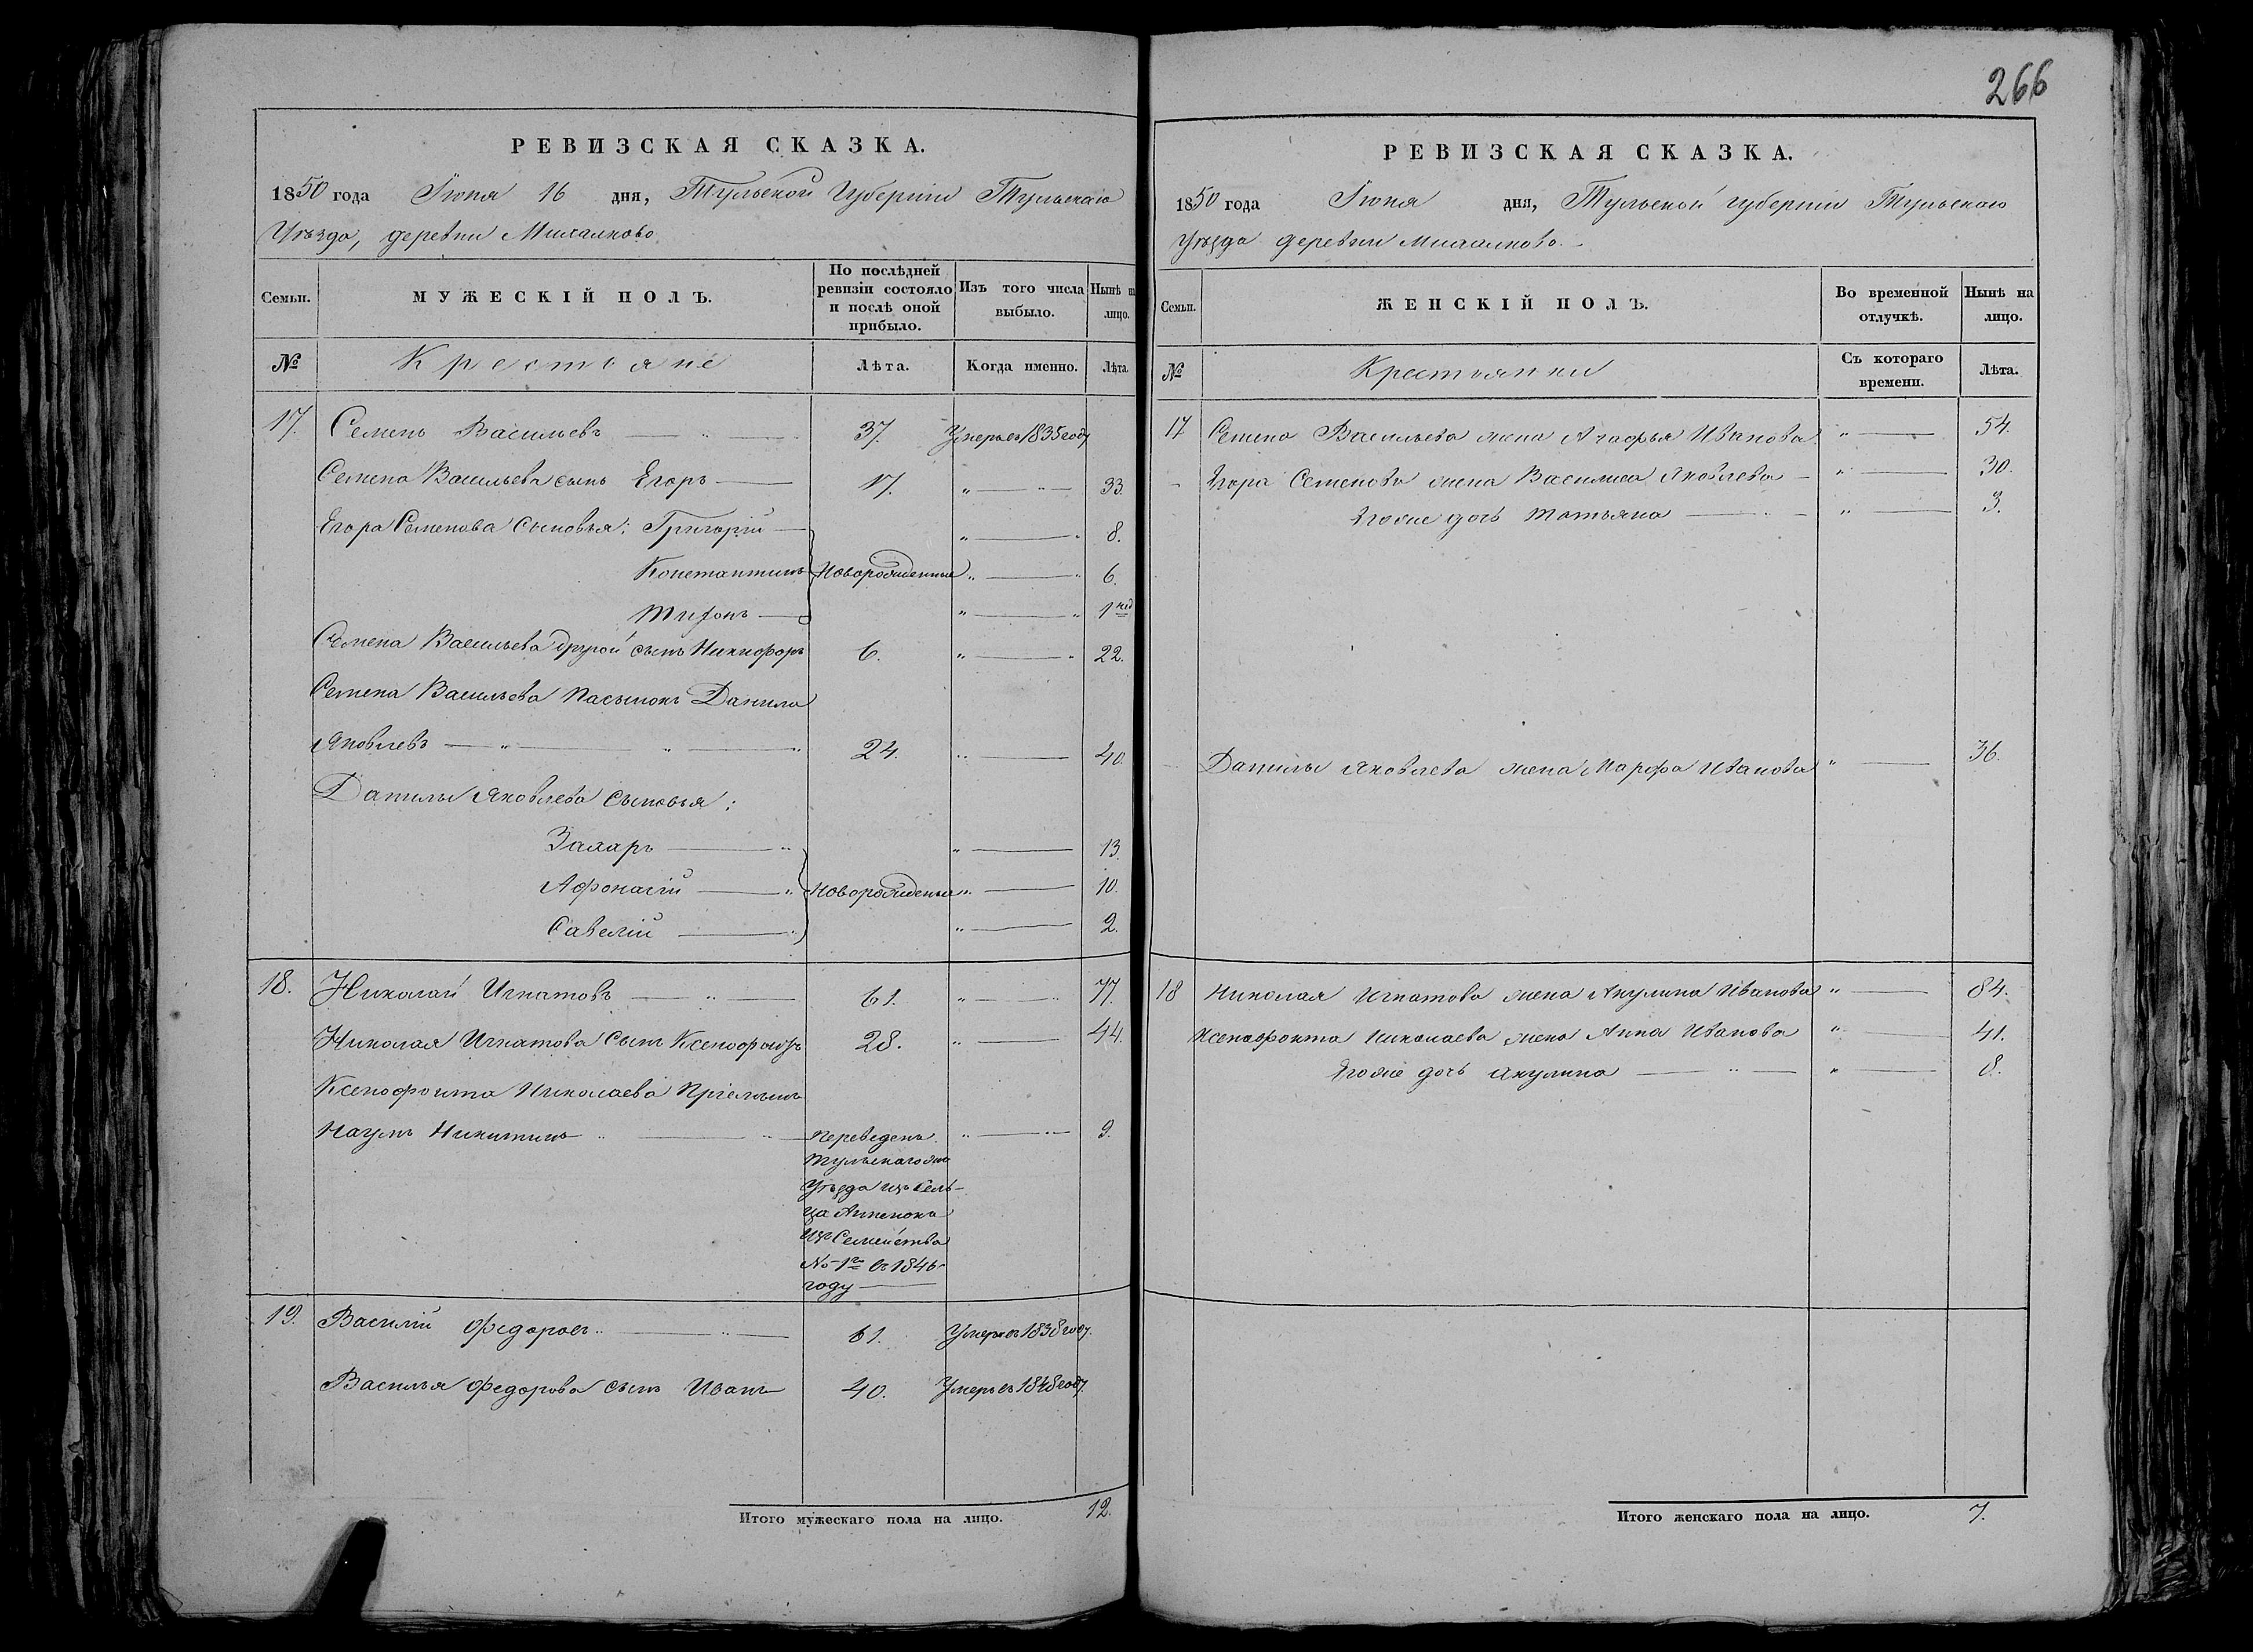 266
РЕВИЗСКАЯ СКАЗКА.
1850 года Іюня 16 дня, Тульской Губерніи Тульскаго
Уѣзда, деревни Михалково
Семьи.
МУЖЕСКІЙ ПОЛЪ.
По послѣдней ревизіи состояло и послѣ оной прибыло.
Изъ того числа выбыло.
Нынѣ на лицо.
№
Крестьяне
Лѣта.
Когда именно.
Лѣта.
17. Семенъ Васильевъ 37. Умеръ въ 1835 году
Семена Васильева сынъ Егоръ 17. 33.
Егора Семенова сыновья: Григорій 8.
Константинъ Новорожденные 6.
Тифонъ 1 нед
Семена Васильева другой сынъ Никифоръ 6. 22.
Семена Васильева пасынокъ Данила
Яковлевъ 24. 40.
Данилы Яковлева сыновья:
Захаръ 13.
Афонасій Новорожденые 10.
Савелій 2.
18. Николай Игнатовъ 61. 77.
Николая Игнатова сынъ Ксенофонтъ 28. 44.
Ксенофонта Николаева Пріемышъ
Наумъ Никитинъ Переведенъ 9.
Тульскаго же
Уѣзда изъ Сель-
ца Анненокъ
Изъ Семейства
№ 1го въ 1846
году
19. Василій Федоровъ 61. Умеръ въ 1838 году.
Василья Федорова сынъ Иванъ 40. Умеръ въ 1848 году.
Итого мужескаго пола на лицо. 12.
РЕВИЗСКАЯ СКАЗКА.
1850 года Іюня дня, Тульской губерніи Тульскаго
Уѣзда деревни Михалково.
Семьи.
ЖЕНСКІЙ ПОЛЪ.
Во временной отлучкѣ.
Нынѣ на лицо.
№
Крестьянки
Съ котораго времени.
Лѣта.
17 Семена Васильева жена Агафья Иванова 54.
Егора Семенова жена Василиса Яковлева 30.
Егоже дочь Татьяна 3.
Данилы Яковлева жена Марфа Иванова 36.
18 Николая Игнатова жена Акулина Иванова 84.
Ксенофонта Николаева жена Анна Иванова 41.
Егоже дочь Акулина 8.
Итого женскаго пола на лицо. 7.